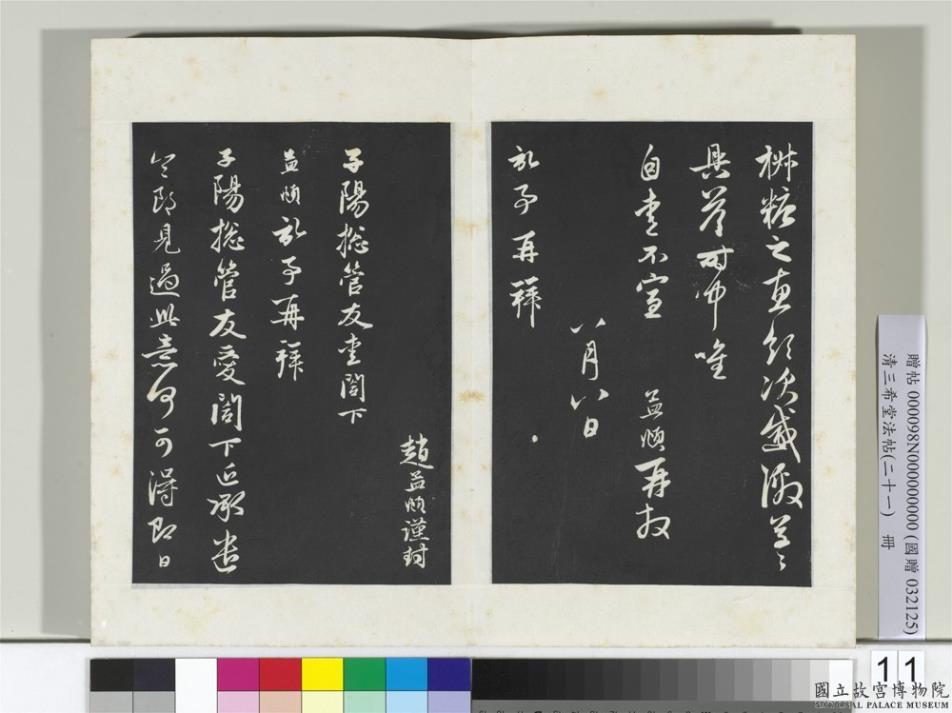 糕之惠領次感激草〻
具答時中唯
自愛不宣 孟頫再拜
八月八日
記事再拜
趙孟頫謹封
子陽總管友愛閣下
孟頫記事再拜
子陽總管友愛閣下近承遣
令郎見過此意何可得即日
贈帖 000098N000000000 (國贈 032125)
清三希堂法帖(二十一) 冊
11
國立故宮博物院
NATIONAL PALACE MUSEUM